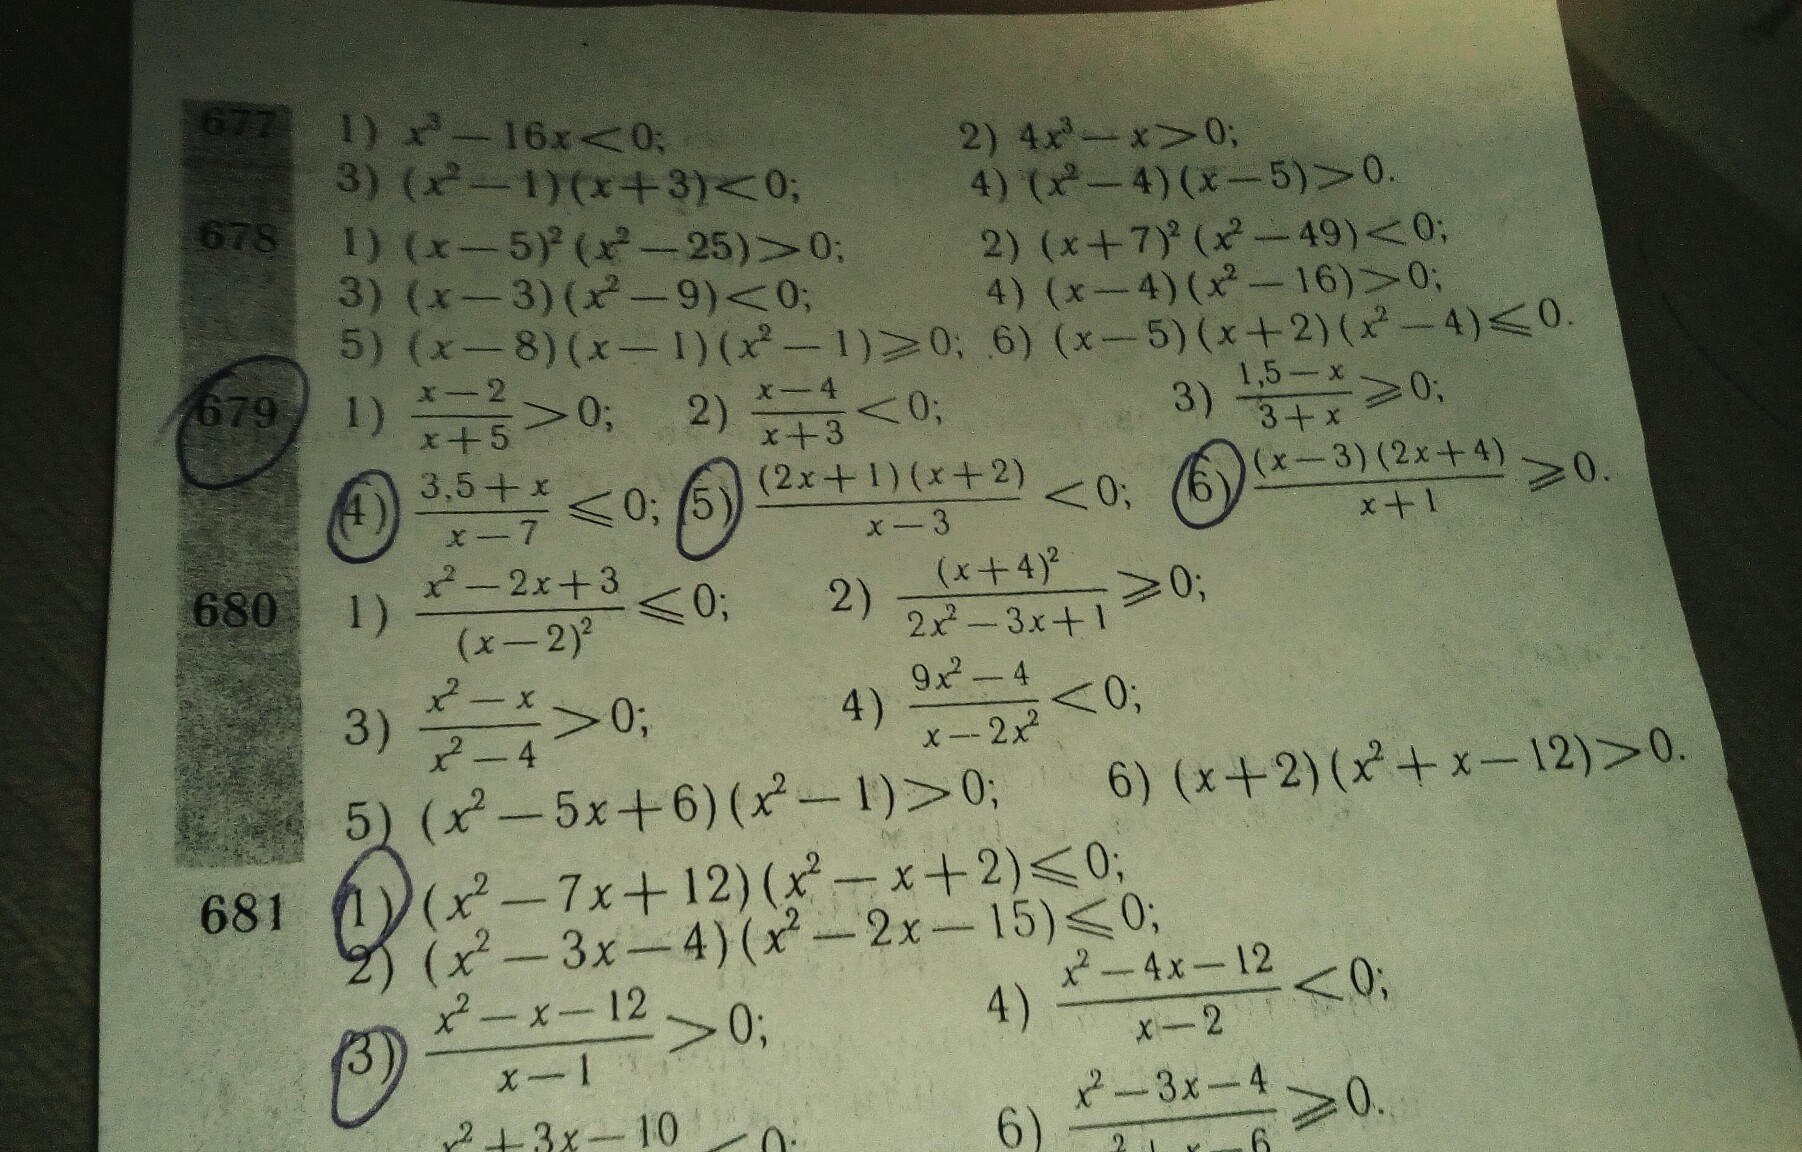 677 1) x³ − 16x < 0; 2) 4x³ − x > 0;
3) (x² − 1)(x + 3) < 0; 4) (x² − 4)(x − 5) > 0.
678 1) (x − 5)² (x² − 25) > 0; 2) (x + 7)² (x² − 49) < 0;
3) (x − 3)(x² − 9) < 0; 4) (x − 4)(x² − 16) > 0;
5) (x − 8)(x − 1)(x² − 1) ⩾ 0; 6) (x − 5)(x + 2)(x² − 4) ⩽ 0.
679 1) (x − 2)/(x + 5) > 0; 2) (x − 4)/(x + 3) < 0; 3) (1,5 − x)/(3 + x) ⩾ 0;
4) (3,5 + x)/(x − 7) ⩽ 0; 5) ((2x + 1)(x + 2))/(x − 3) < 0; 6) ((x − 3)(2x + 4))/(x + 1) ⩾ 0.
680 1) (x² − 2x + 3)/(x − 2)² ⩽ 0; 2) (x + 4)²/(2x² − 3x + 1) ⩾ 0;
3) (x² − x)/(x² − 4) > 0; 4) (9x² − 4)/(x − 2x²) < 0;
5) (x² − 5x + 6)(x² − 1) > 0; 6) (x + 2)(x² + x − 12) > 0.
681 1) (x² − 7x + 12)(x² − x + 2) ⩽ 0;
2) (x² − 3x − 4)(x² − 2x − 15) ⩽ 0;
3) (x² − x − 12)/(x − 1) > 0; 4) (x² − 4x − 12)/(x − 2) < 0;
x² + 3x − 10 0; 6) (x² − 3x − 4)/(x² + x − 6) ⩾ 0.